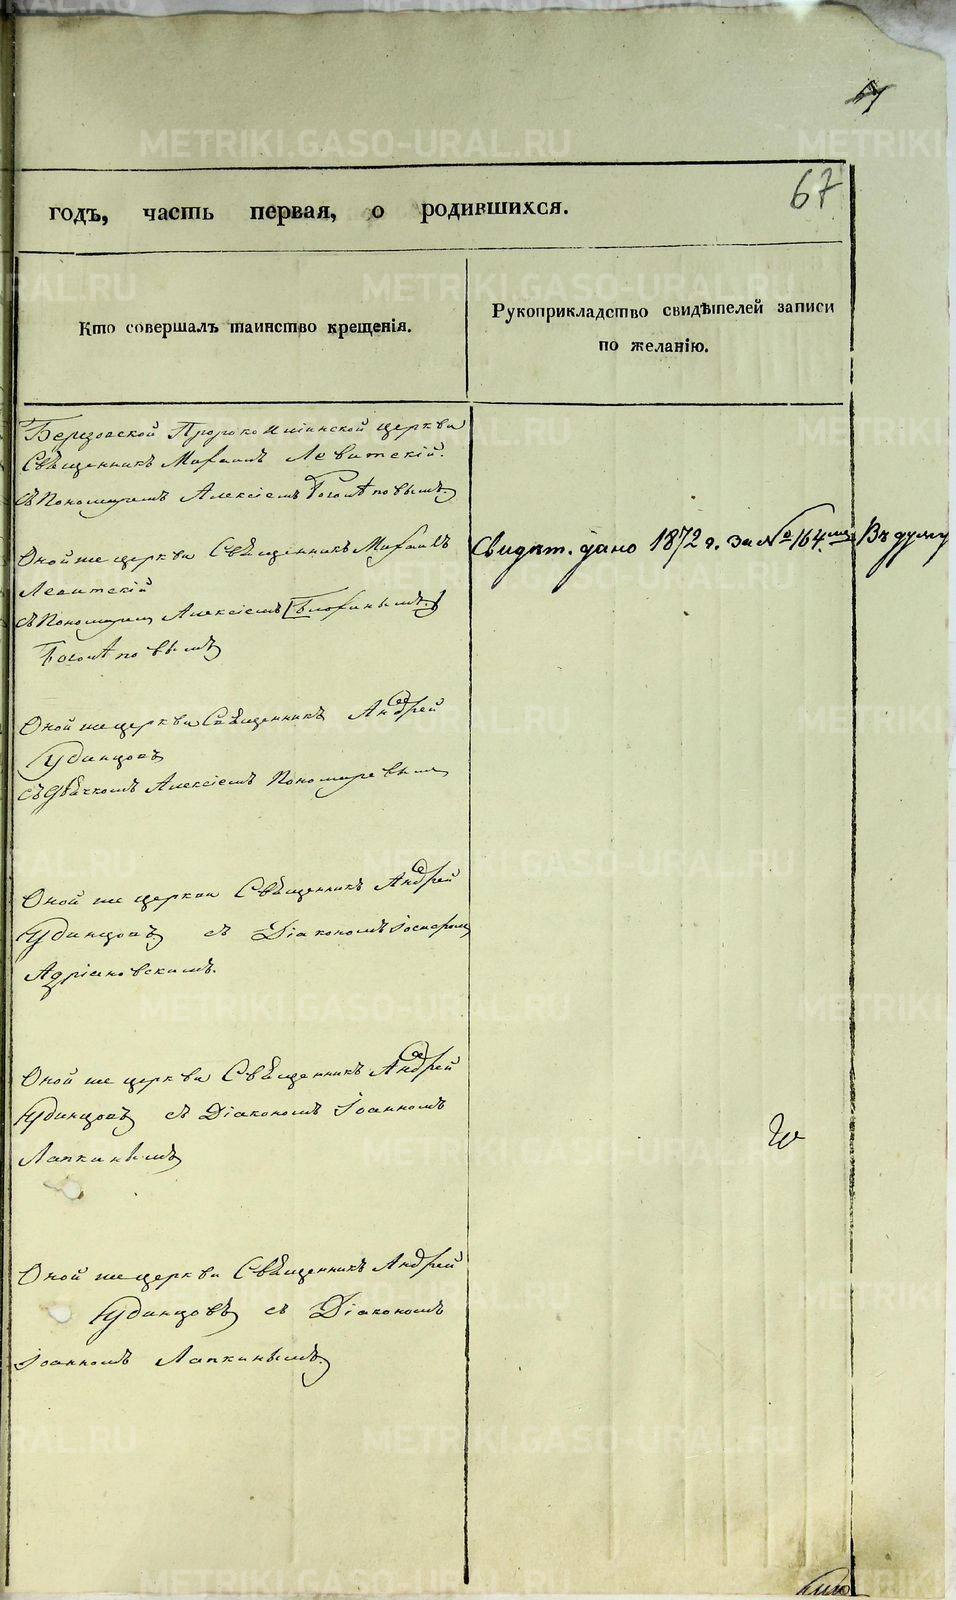 67
годъ, часть первая, о родившихся.
Кто совершалъ таинство крещенія.
Рукоприкладство свидѣтелей записи
по желанію.
Березовской Пророко Илiинской церкви
Священникъ Михаилъ Левитскій.
съ Пономаремъ Алексіемъ
Оной же церкви Священникъ Михаилъ
Левитскій
съ Пономаремъ Алексіемъ
Свидѣт. дано 1872 г. за № 164. Въ думу
Оной же церкви Священникъ Андрей
Удинцовъ
съ Дьячкомъ Алексіемъ Пономаревым
Оной же церкви Священникъ Андрей
Удинцовъ съ Діакономъ
Адріановскимъ.
Оной же церкви Священникъ Андрей
Удинцовъ съ Діакономъ Іоанномъ
Лапкинымъ
Оной же церкви Священникъ Андрей
Удинцовъ съ Діакономъ
Іоанномъ Лапкинымъ.
METRIKI.GASO-URAL.RU